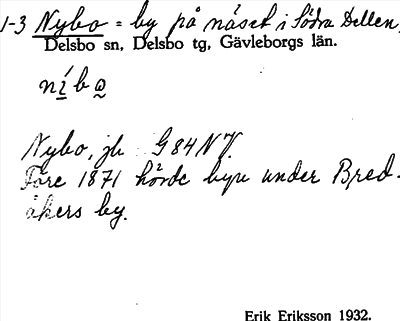 1-3 Nybo = by på näset i Södra Dellen,
Delsbo sn, Delsbo tg, Gävleborgs län.
níbo
Nybo, jb G84NV.
Före 1871 hörde byn under Bred-
åkers by.
Erik Eriksson 1932.